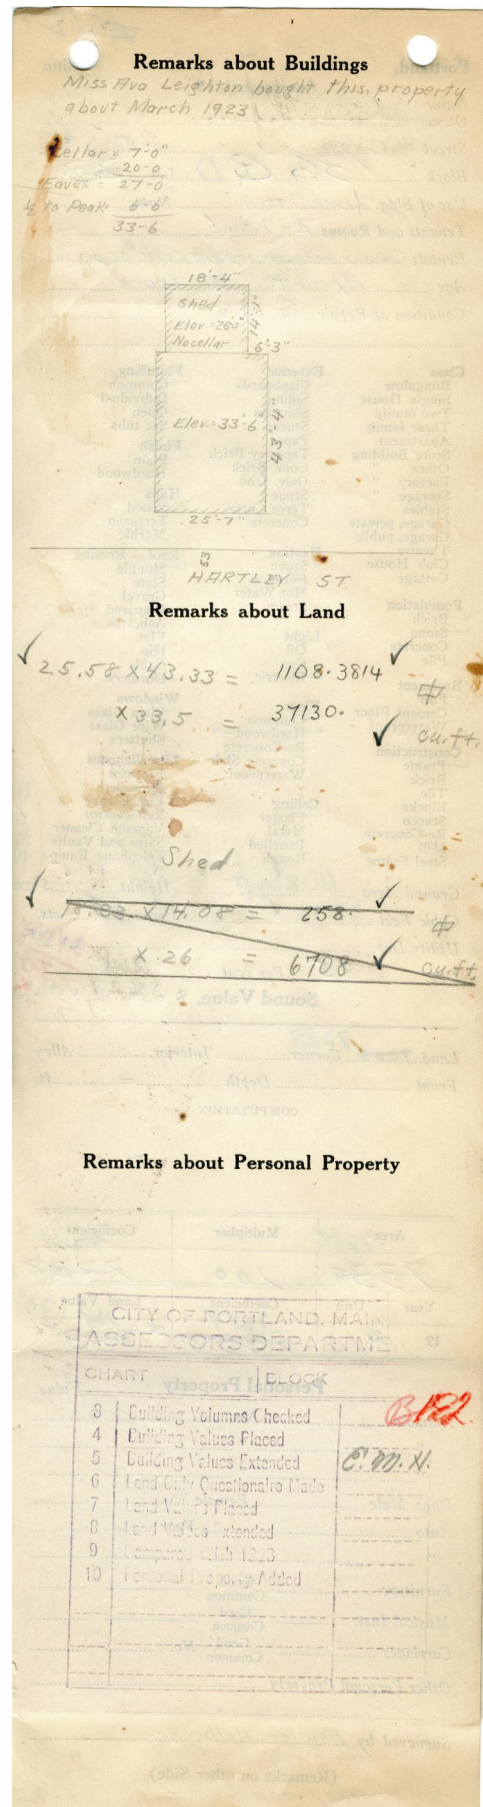 Remarks about Buildings
Miss Ava Leighton bought this property
about March 1923
Cellar = 7'-0"
20-0
Eaves = 27-0
½ to Peak: 6-6
33-6
18'-4"
Shed
Elev = 26'0"
No cellar
14'-1"
6'-3"
Elev = 33'-6"
43'-4"
25'-7"
53
HARTLEY ST.
Remarks about Land
25.58 X 43.33 = 1108.3814
X 33.5 = 37130.
cu.ft.
Shed
18.33 X 14.08 = 258.
X .26 = 6708
cu.ft.
Remarks about Personal Property
CITY OF PORTLAND, MAIN
ASSESSORS DEPARTME
CHART BLOCK
3 Building Volumns Checked B122
4 Building Values Placed
5 Building Values Extended E.M.H.
6 Land Only Questionaire Made
7 Land Values Placed
8 Land Values Extended
9 Compared With 1923
10 Personal Property Added